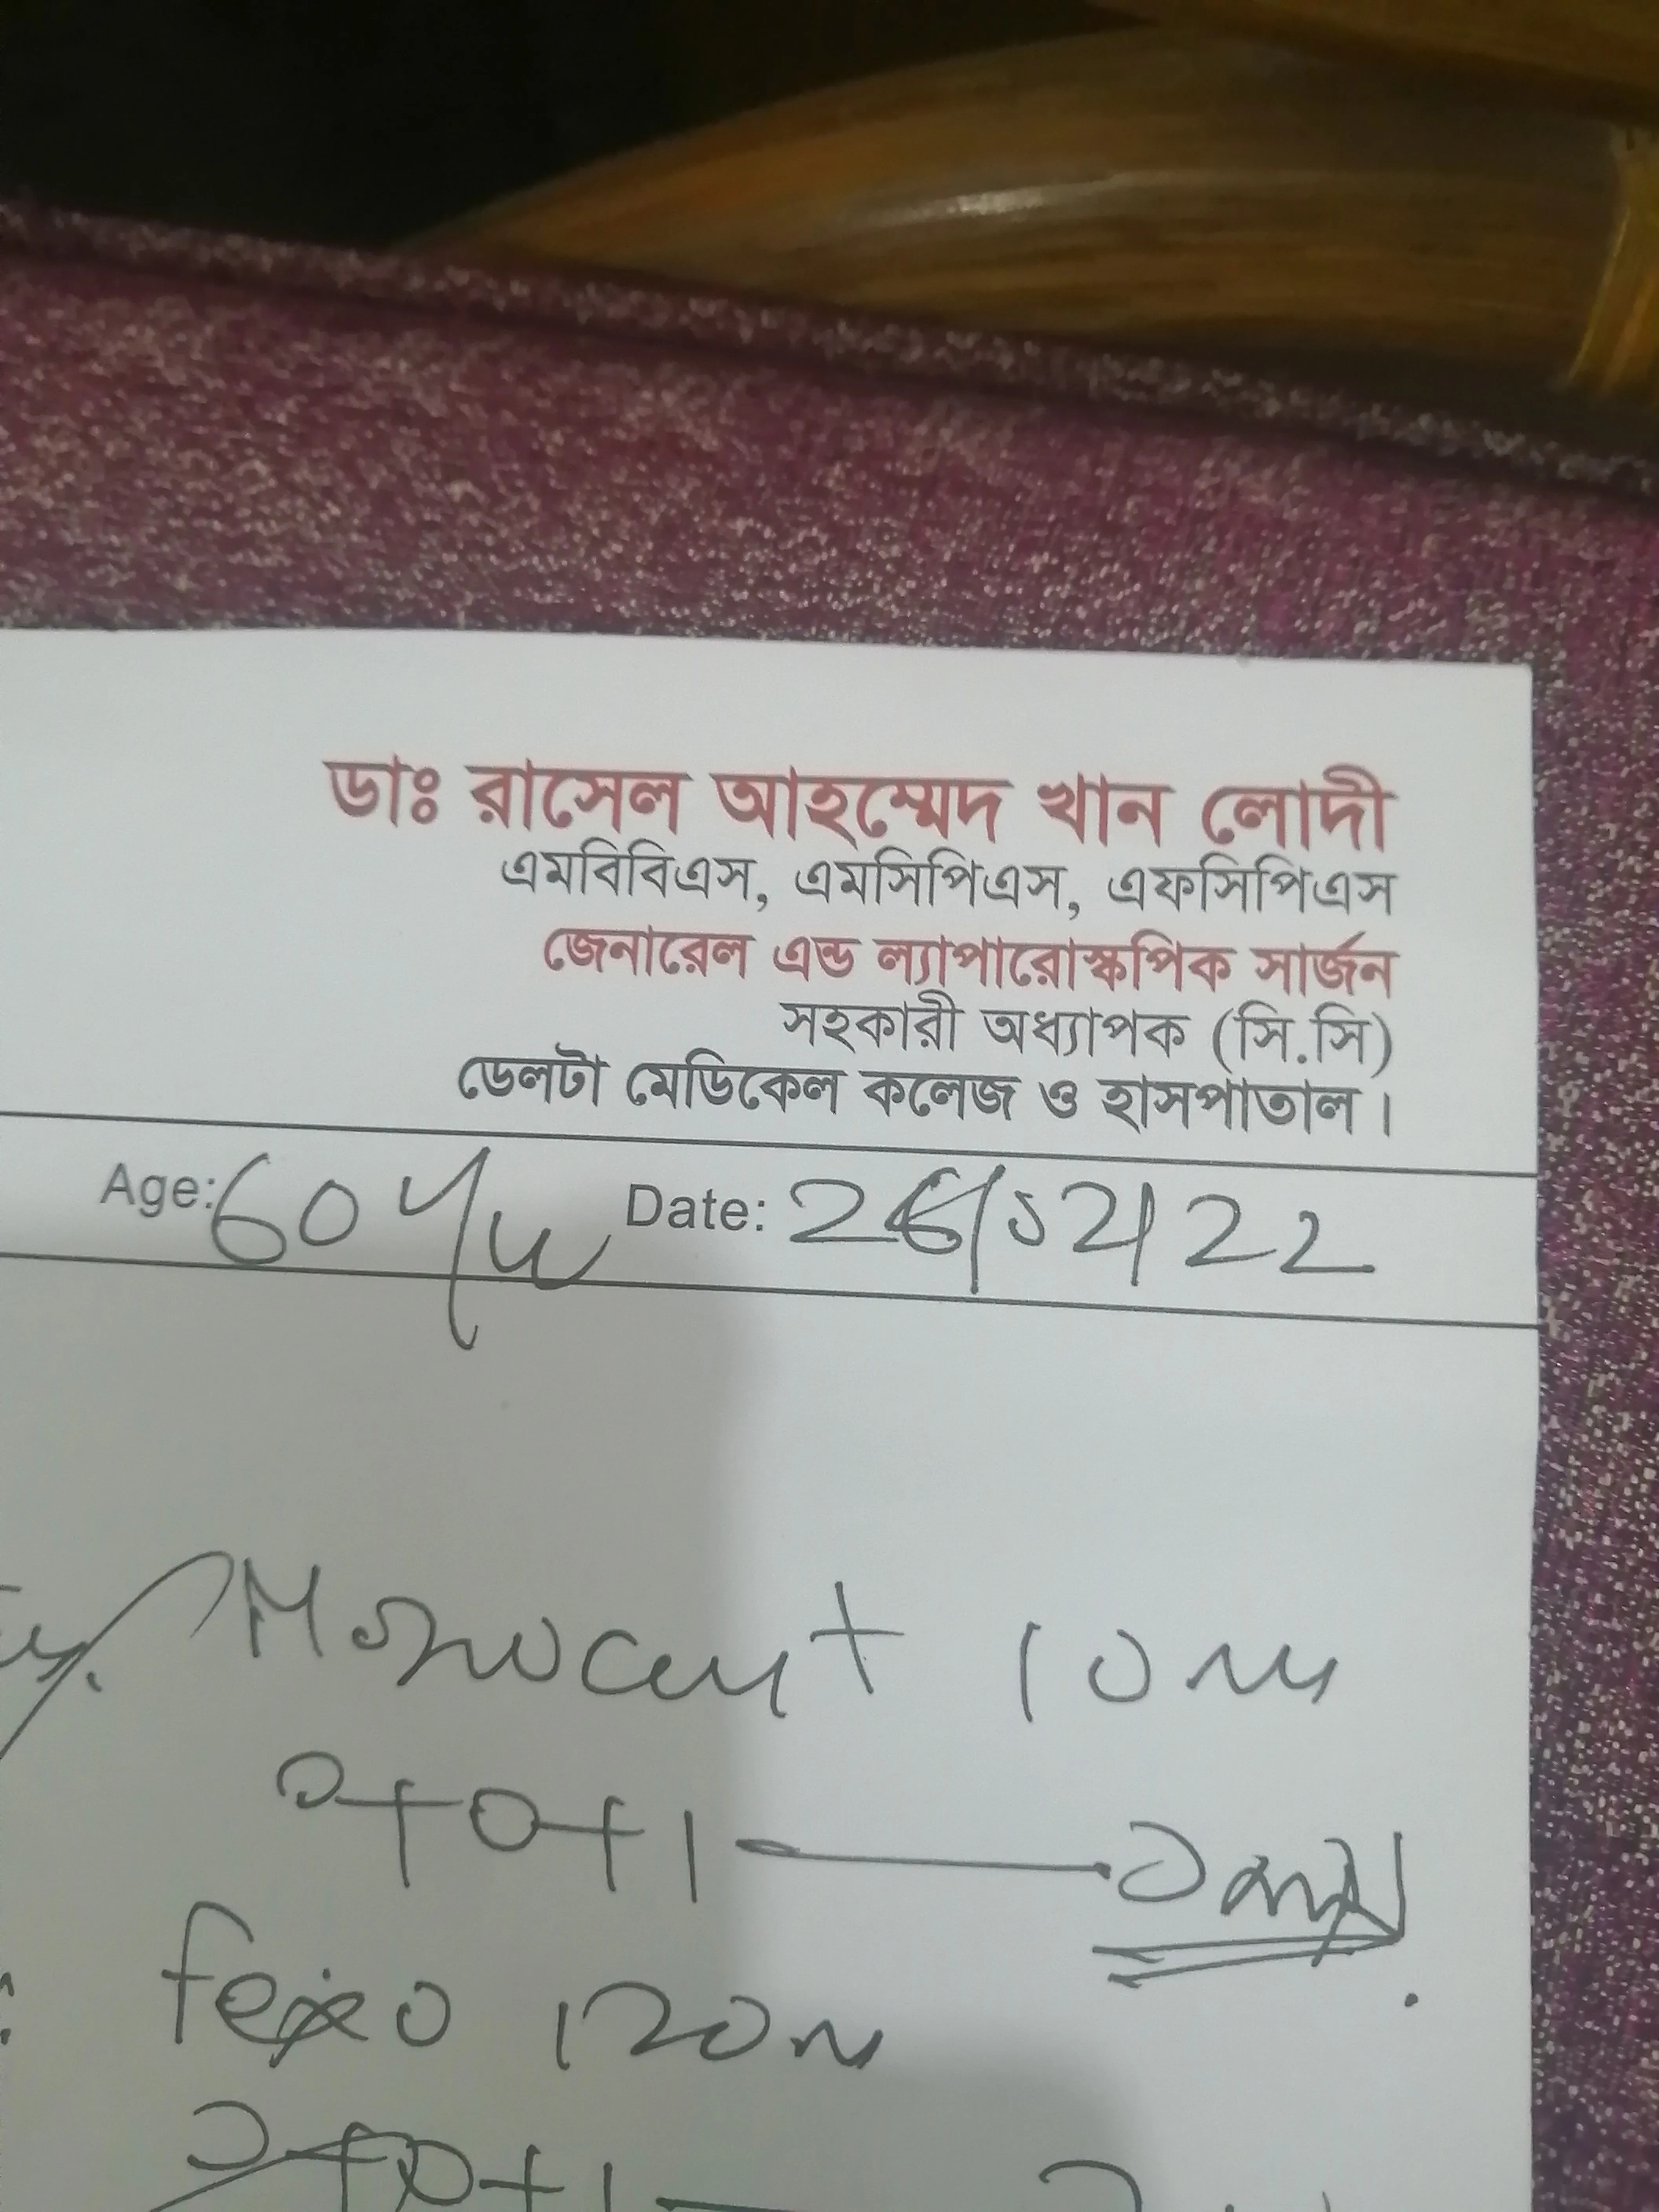 ডাঃ রাসেল আহম্মেদ খান লোদী
এমবিবিএস, এমসিপিএস, এফসিপিএস
জেনারেল এন্ড ল্যাপারোস্কপিক সার্জন
সহকারী অধ্যাপক (সি.সি)
ডেলটা মেডিকেল কলেজ ও হাসপাতাল।
Age: 60 Date: 26/02/22
Monocast 10
0+0+1
fexo 120
0+0+1